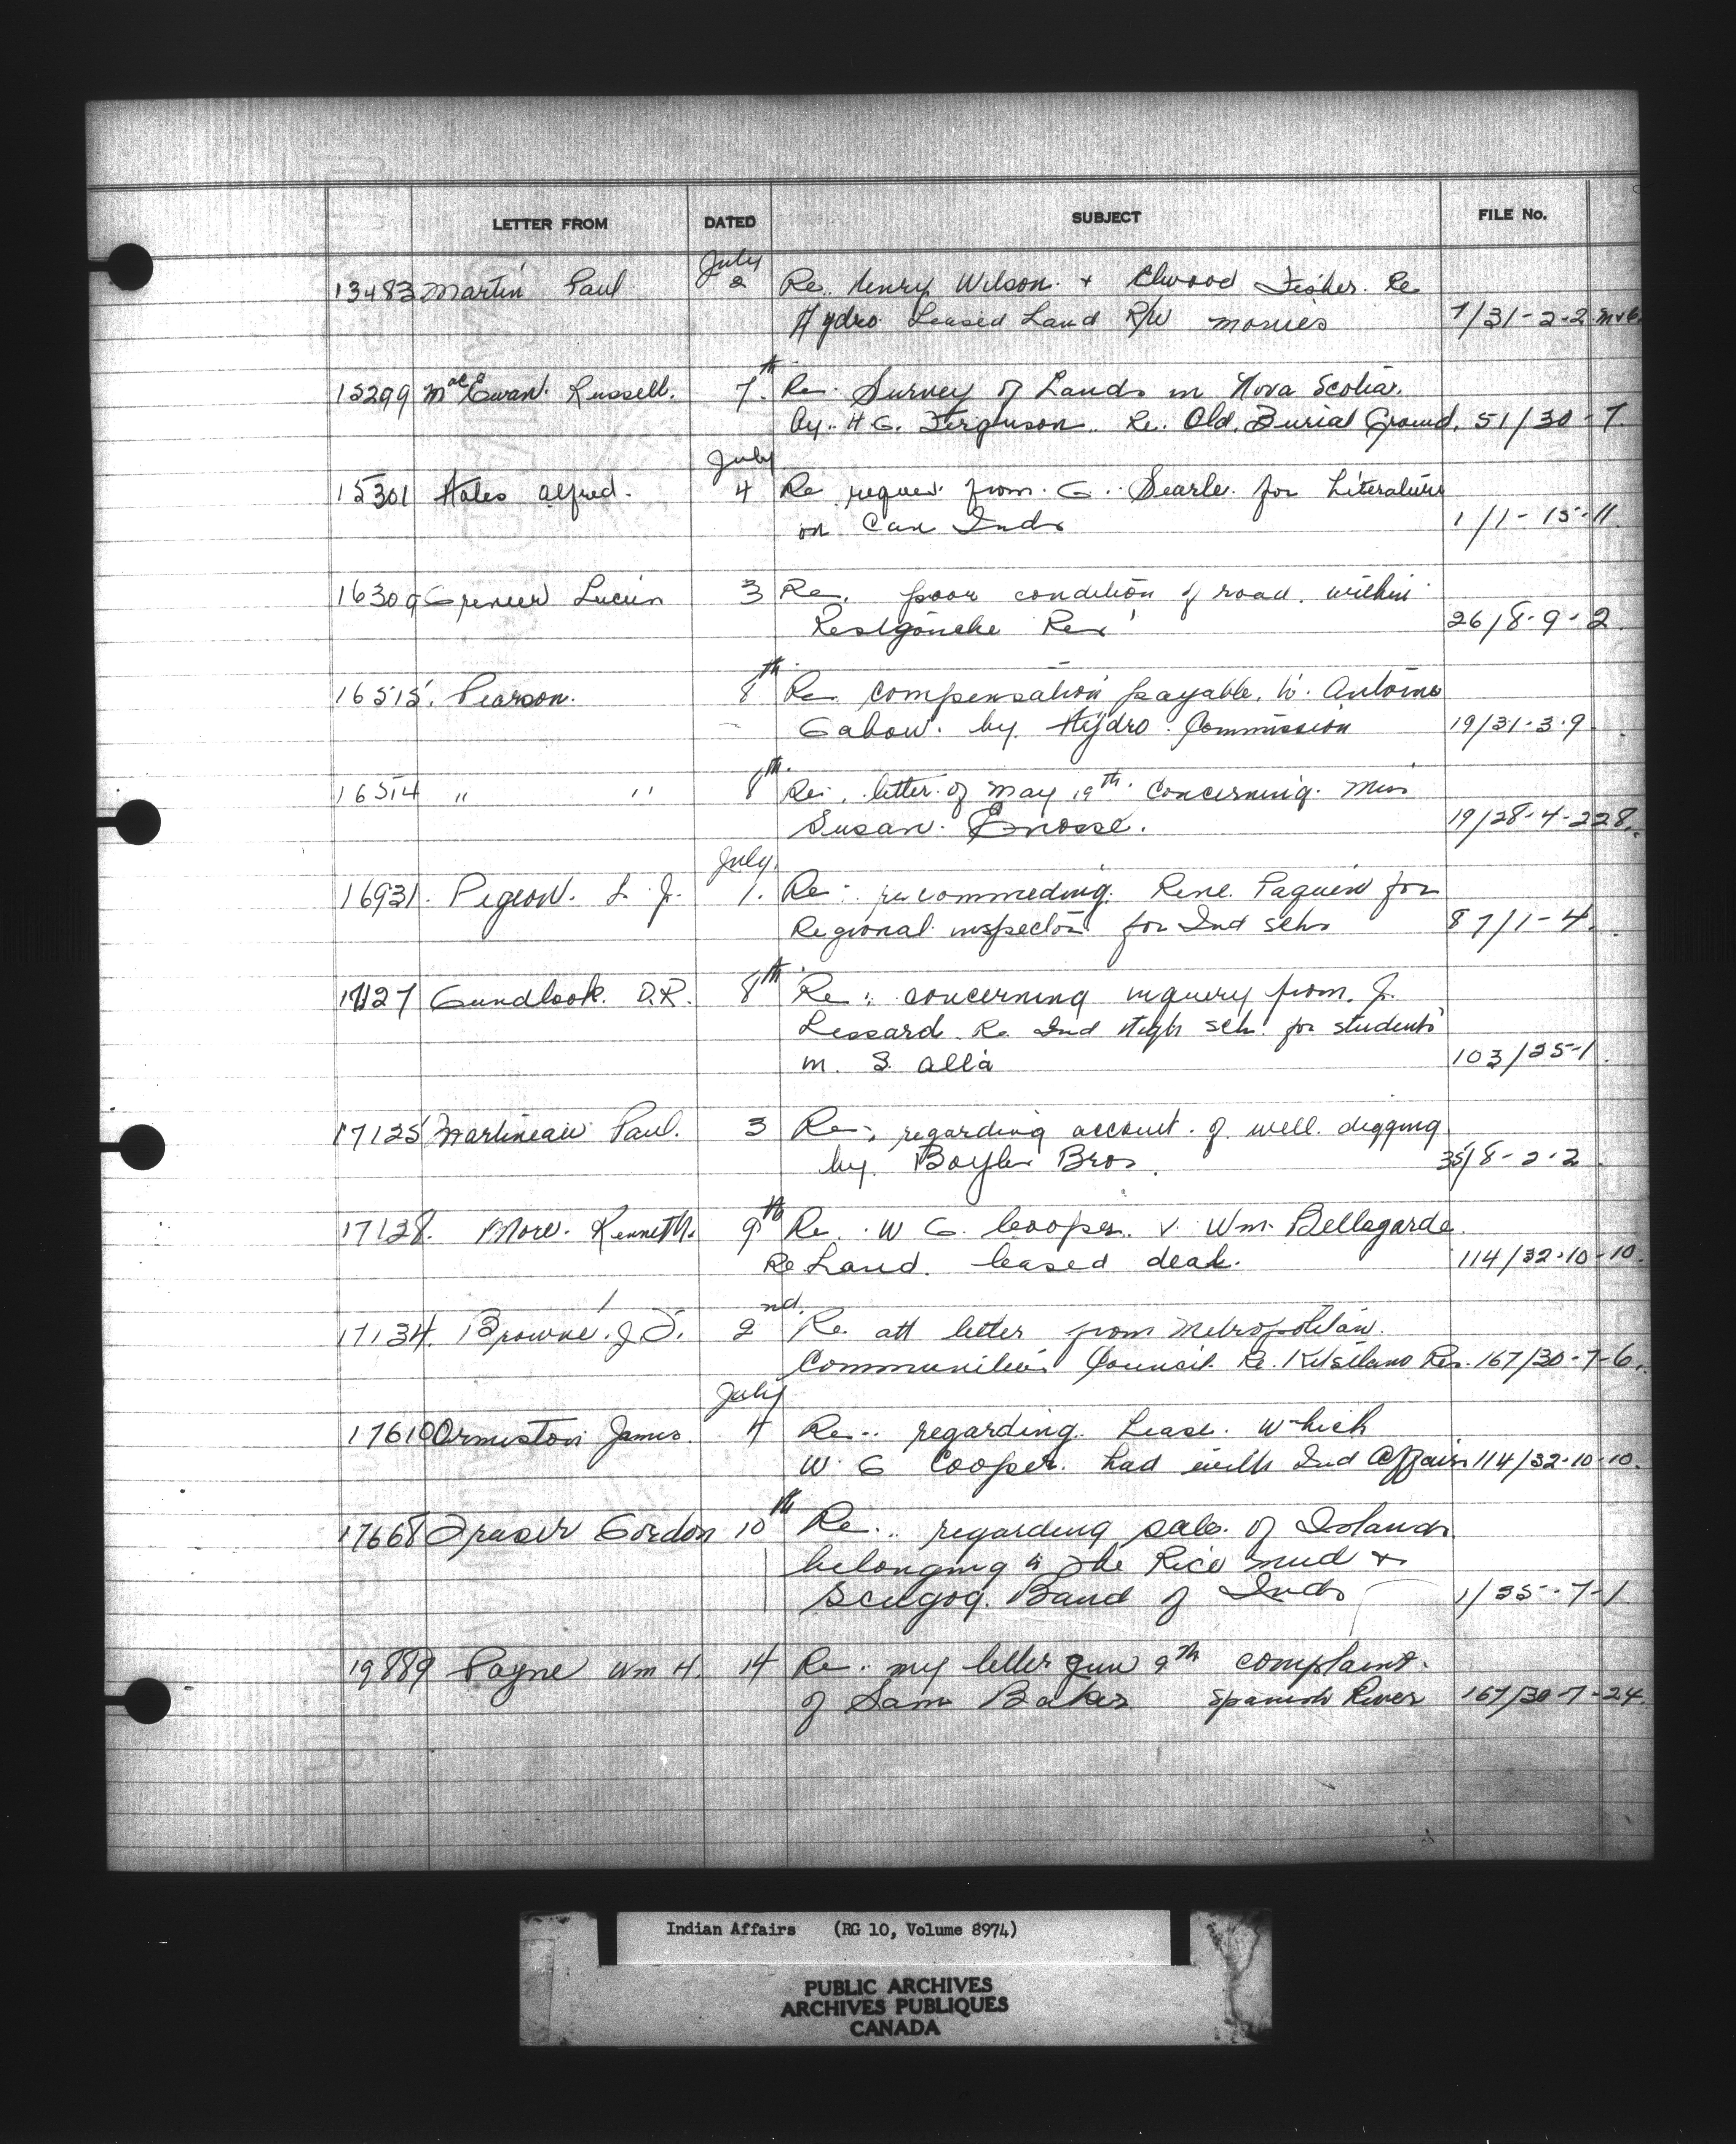 LETTER FROM DATED SUBJECT FILE No.
July
13483 Martin Paul 2 Re. Henry Wilson + Elwood Fisher. Re
Hydro Leased Land R/W monies 7/31-2-2
15299 MacEwan Russell. 7th Re. Survey of Lands in Nova Scotia.
by. H G. Ferguson. Re. Old. Burial Ground. 51/30-7
July
15301 Hales Alfred. 4 Re request from. G. Searle. for Literature
on Can Inds 1/1-15-11
16309 Grenier Lucien 3 Re. poor condition of road. within
Restgouche Res 26/8-9-2
16515. Pearson. 8th Re. compensation payable. to. Antoine
Gabow. by Hydro Commission 19/31-3-9
16514 " " 8th Re. letter of May 19th. concerning. Miss
Susan. Enosse. 19/28-4-228.
July.
16931. Pigeon. L. J. 1. Re. recommeding. Rene. Paquin for
Regional inspector for Ind schs 87/1-4.
17127 Gundlock. D.R. 8th Re. concerning inquery from. J.
Lessard Re Ind High sch. for students
in. S. Alta 103/25-1.
17125 Martineau Paul. 3 Re. regarding account. of well. digging
by. Boyles Bros. 35/8-2-2
17128. More. Kenneth. 9th Re. W G. Cooper. v. Wm. Bellegarde.
Re Land. leased deal. 114/32-10-10.
17134. Browne. J 2nd. Re. att letter from Metropolitan.
Communities Council. Re. Kitsilano Res. 167/30-7-6.
July
17610 Ormiston James. 4 Re.. regarding. Lease. which
W. G Cooper. had with Ind Affairs 114/32-10-10.
17668 Fraser Gordon 10th Re.. regarding sale. of Islands
belonging to the Rice Mud +
Scugog. Band of Inds 1/35-7-1
19889 Payne Wm H. 14 Re.. my letter Jun 9th complaint.
of Sam Baker Spanish River 167/30-7-24.
Indian Affairs (RG 10, Volume 8974)
PUBLIC ARCHIVES
ARCHIVES PUBLIQUES
CANADA